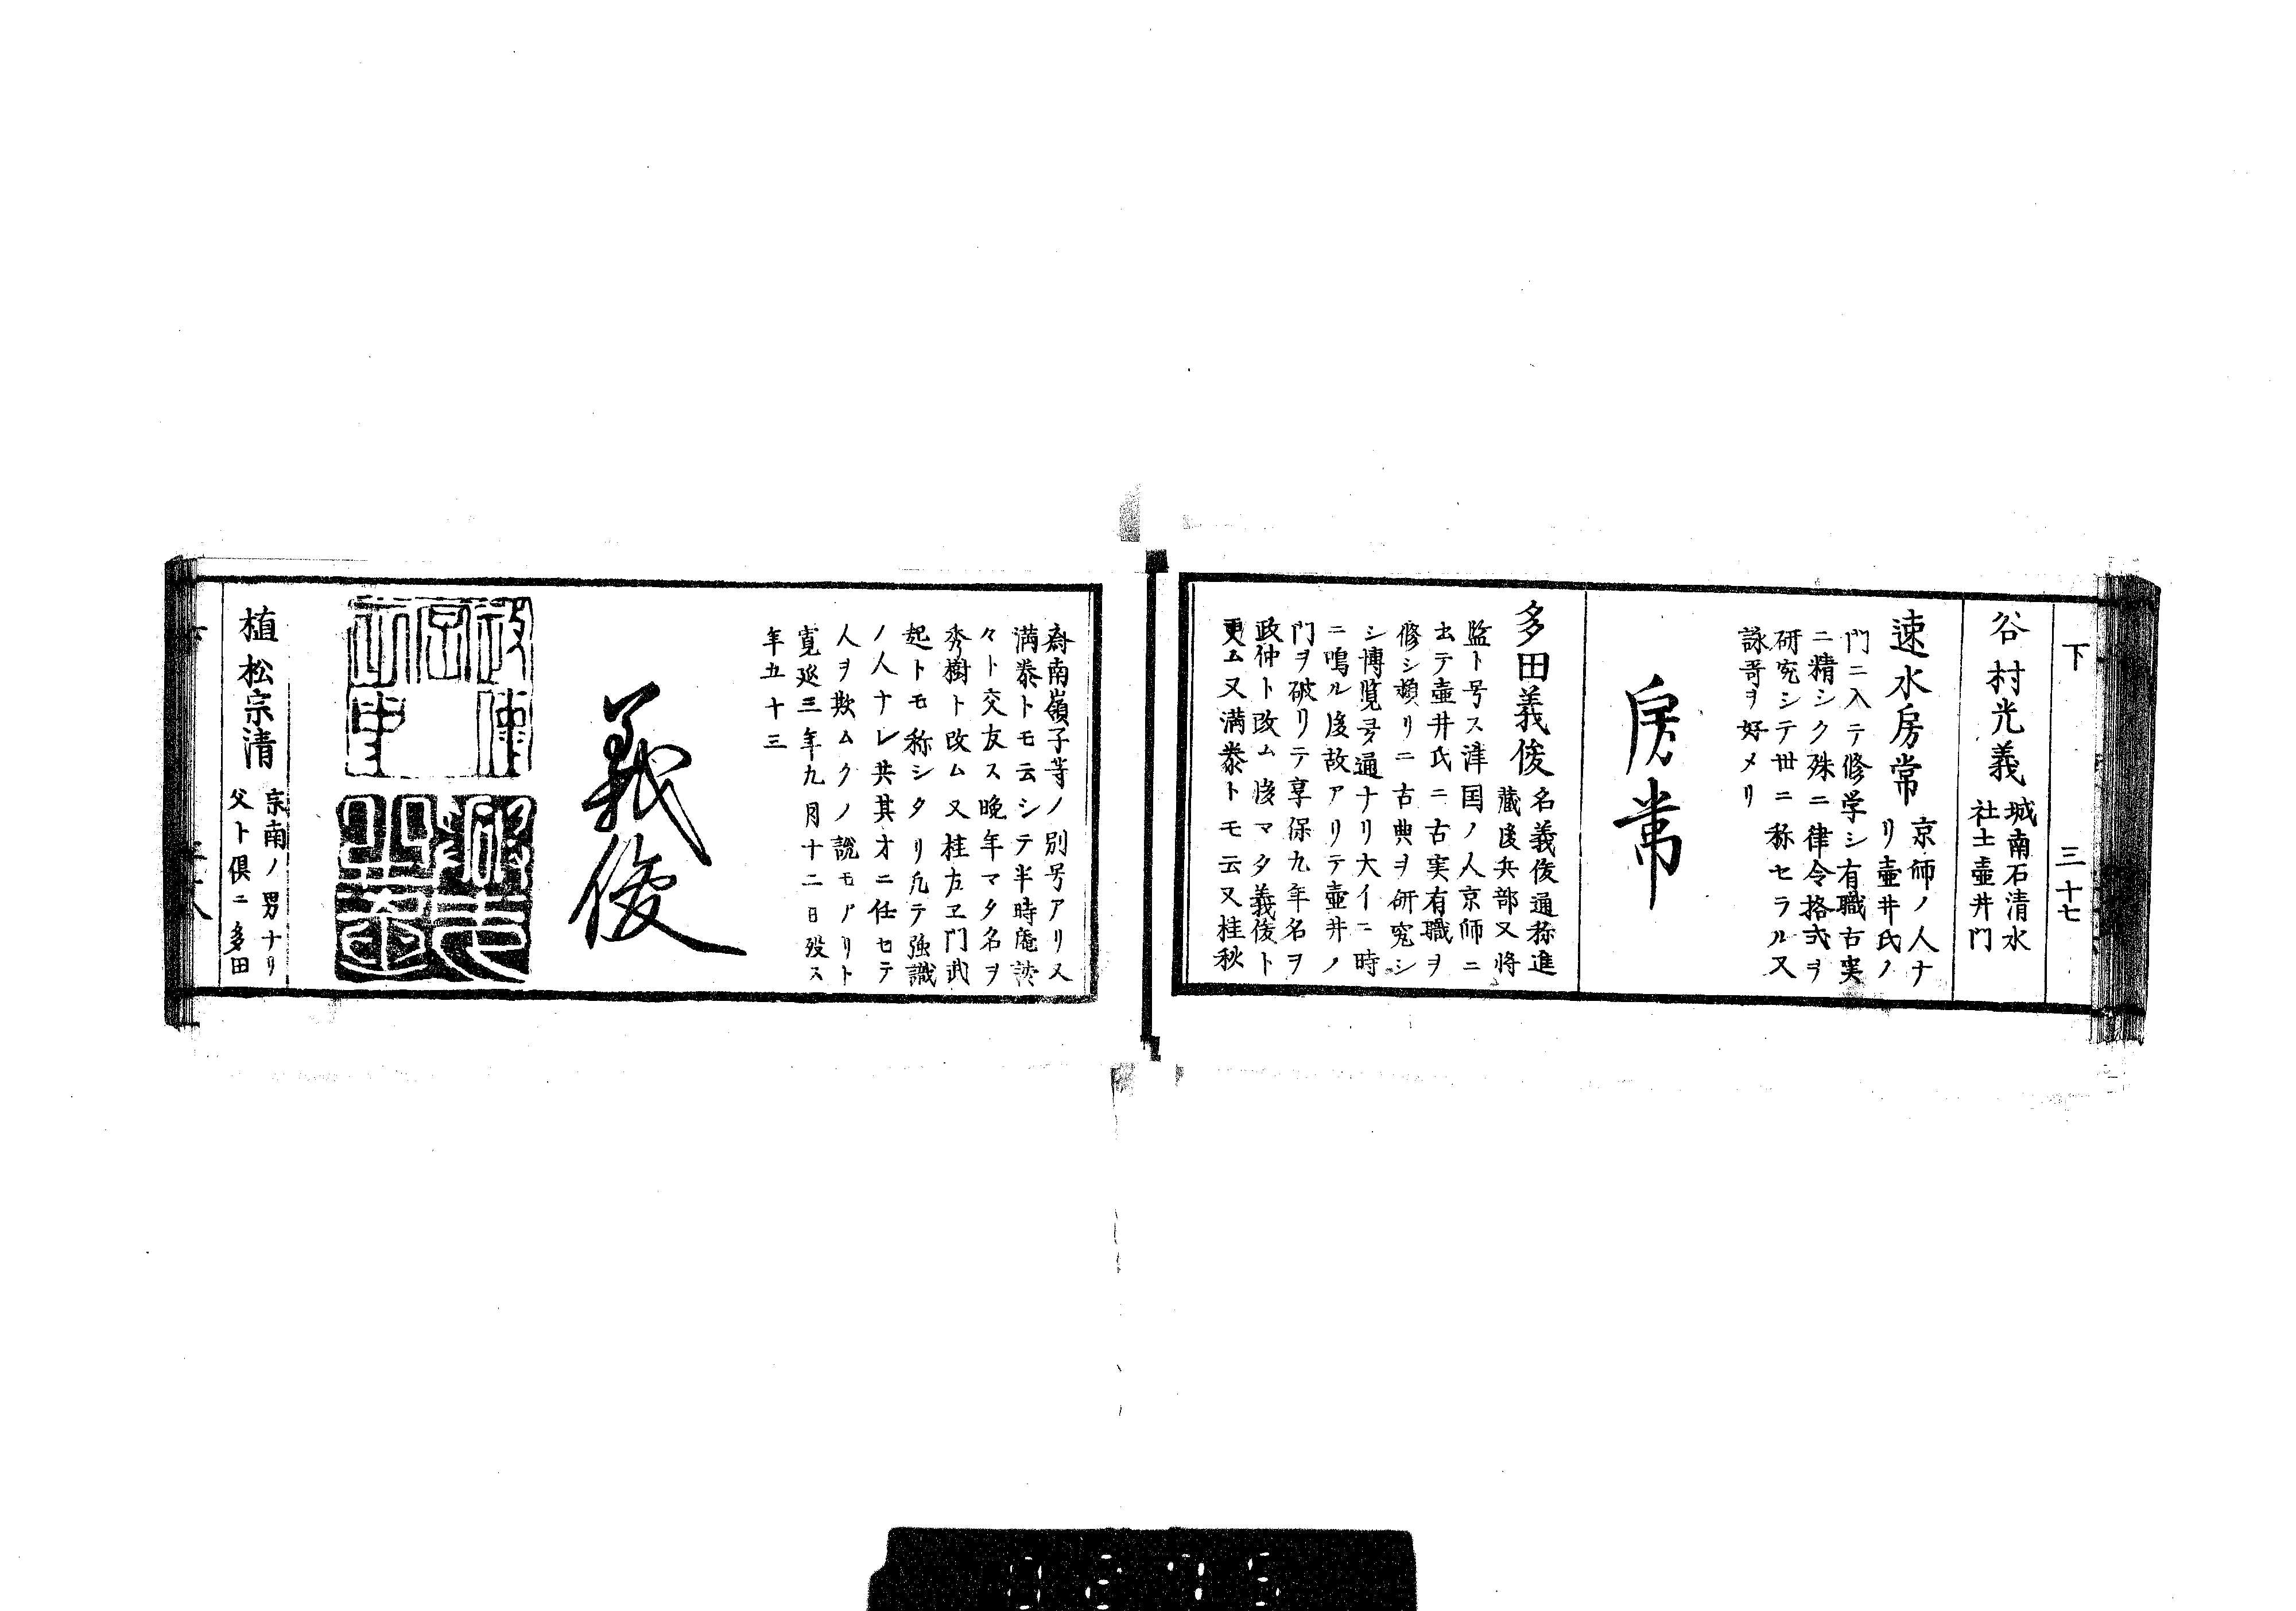 下
三十七
谷村光義
城南石清水
社士壺井門
速水房常
京師ノ人ナ
リ壺井氏ノ
門ニ入テ修学シ有職古実
ニ精シク殊ニ律令格式ヲ
研究シテ世ニ称セラル又
詠哥ヲ好メリ
房常
多田義俊
名義俊通称進
蔵後兵部又将
監ト号ス津国ノ人京師ニ
出テ壺井氏ニ古実有職ヲ
修シ頻リニ古典ヲ研究シ
シ博覧旁通ナリ大イニ時
ニ鳴ル後故アリテ壺井ノ
門ヲ破リテ享保九年名ヲ
政仲ト改ム後マタ義俊ト
更ム又満泰トモ云又桂秋
斎南嶺子等ノ別号アリ又
満泰トモ云シテ半時庵淡
々ト交友ス晩年マタ名ヲ
秀樹ト改ム又桂左エ門武
起トモ称シタリ凡テ強識
ノ人ナレ共其才ニ任セテ
人ヲ欺ムクノ説モアリト
寛延三年九月十二日歿ス
年五十三
義俊
植松宗清
宗南ノ男ナリ
父ト倶ニ多田